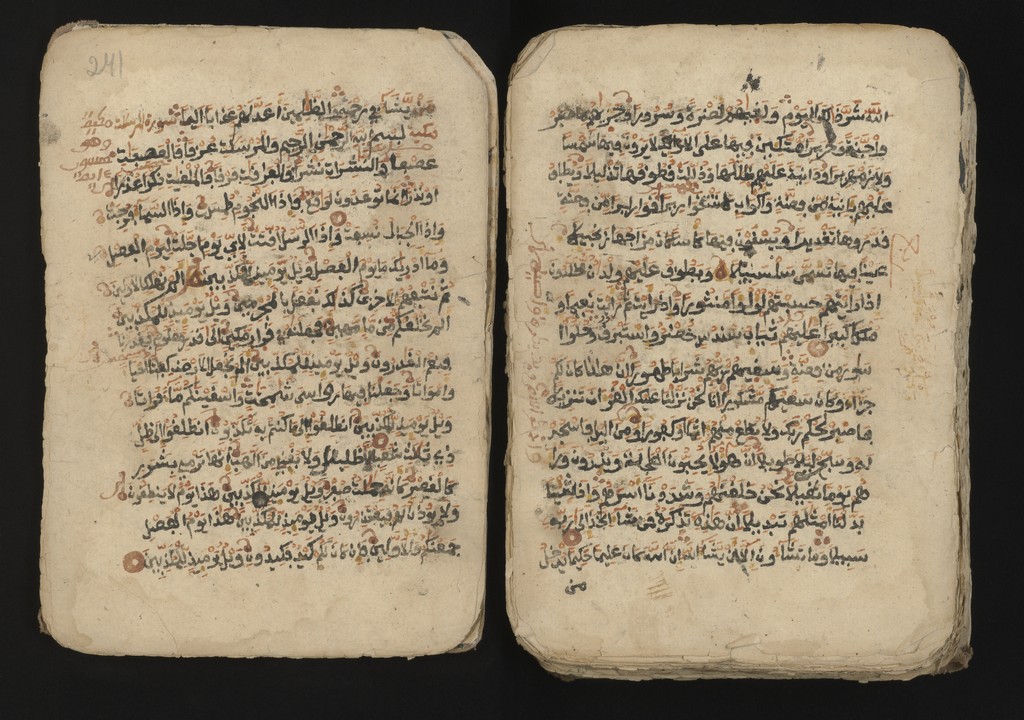 الله شر ذلك اليوم ولقيهم نضرة وسرورا وجزيهم بما صبروا
متكئين فيها على الارائك لا يرون فيها شمسا
ولا زمهريرا ودانية عليهم ظللها وذللت قطوفها تذليلا ويطاف
عليهم بانية من فضة واكواب كانت قواريرا قواريرا من فضة
قدروها تقديرا ويسقون فيها كاسا كان مزاجها زنجبيلا
عينا فيها تسمى سلسبيلا ويطوف عليهم ولدان مخلدون
اذا رايتهم حسبتهم لولوا منثورا واذا رايت ثم رايت نعيما و
ملكا كبيرا عليهم ثياب سندس خضر واستبرق وحلوا
اساور من فضة وسقيهم ربهم شرابا طهورا ان هذا كان لكم
جزاء وكان سعيكم مشكورا انا نحن نزلنا عليك القران تنزيلا
فاصبر لحكم ربك ولا تطع منهم اثما او كفورا ومن اليل فاسجد
له وسبحه ليلا طويلا ان هولاء يحبون العاجلة ويذرون ورا
هم يوما ثقيلا نحن خلقنهم وشددنا اسرهم واذا شئنا
بدلنا امثلهم تبديلا ان هذه تذكرة فمن شا اتخذ الى ربه
سبيلا وما تشاون الا ان يشا الله ان الله كان عليما حكيما يدخل
من
241
من يشا في رحمته والظلمين اعد لهم عذابا اليما سورة المرسلت مكية
بسم الله الرحمن الرحيم والمرسلت عرفا فالعصفت
عصفا والنشرات نشرا فالفرقت فرقا فالملقيت ذكرا عذرا
او نذرا انما توعدون لواقع فاذا النجوم طمست واذا السما فرجت
واذا الجبال نسفت واذا الرسل اقتت لاي يوم اجلت ليوم الفصل
وما ادريك ما يوم الفصل ويل يوميذ للمكذبين الم نهلك الاولين
ثم نتبعهم الاخرين كذلك نفعل بالمجرمين ويل يوميذ للمكذبين
الم نخلقكم من ما مهين فجعلنه في قرار مكين الى قدر معلوم فقدرنا
فنعم القدرون ويل يوميذ للمكذبين الم نجعل الارض كفاتا احيا
وامواتا وجعلنا فيها روسي شمخت واسقينكم ما فراتا
ويل يوميذ للمكذبين انطلقوا الى ما كنتم به تكذبون انطلقوا الى ظل
ذي ثلث شعب لا ظليل ولا يغني من اللهب انها ترمي بشرر
كالقصر كانه جملت صفر ويل يوميذ للمكذبين هذا يوم لا ينطقون
ولا يوذن لهم فيعتذرون ويل يوميذ للمكذبين هذا يوم الفصل
جمعنكم والاولين فان كان لكم كيد فكيدون ويل يوميذ للمكذبين